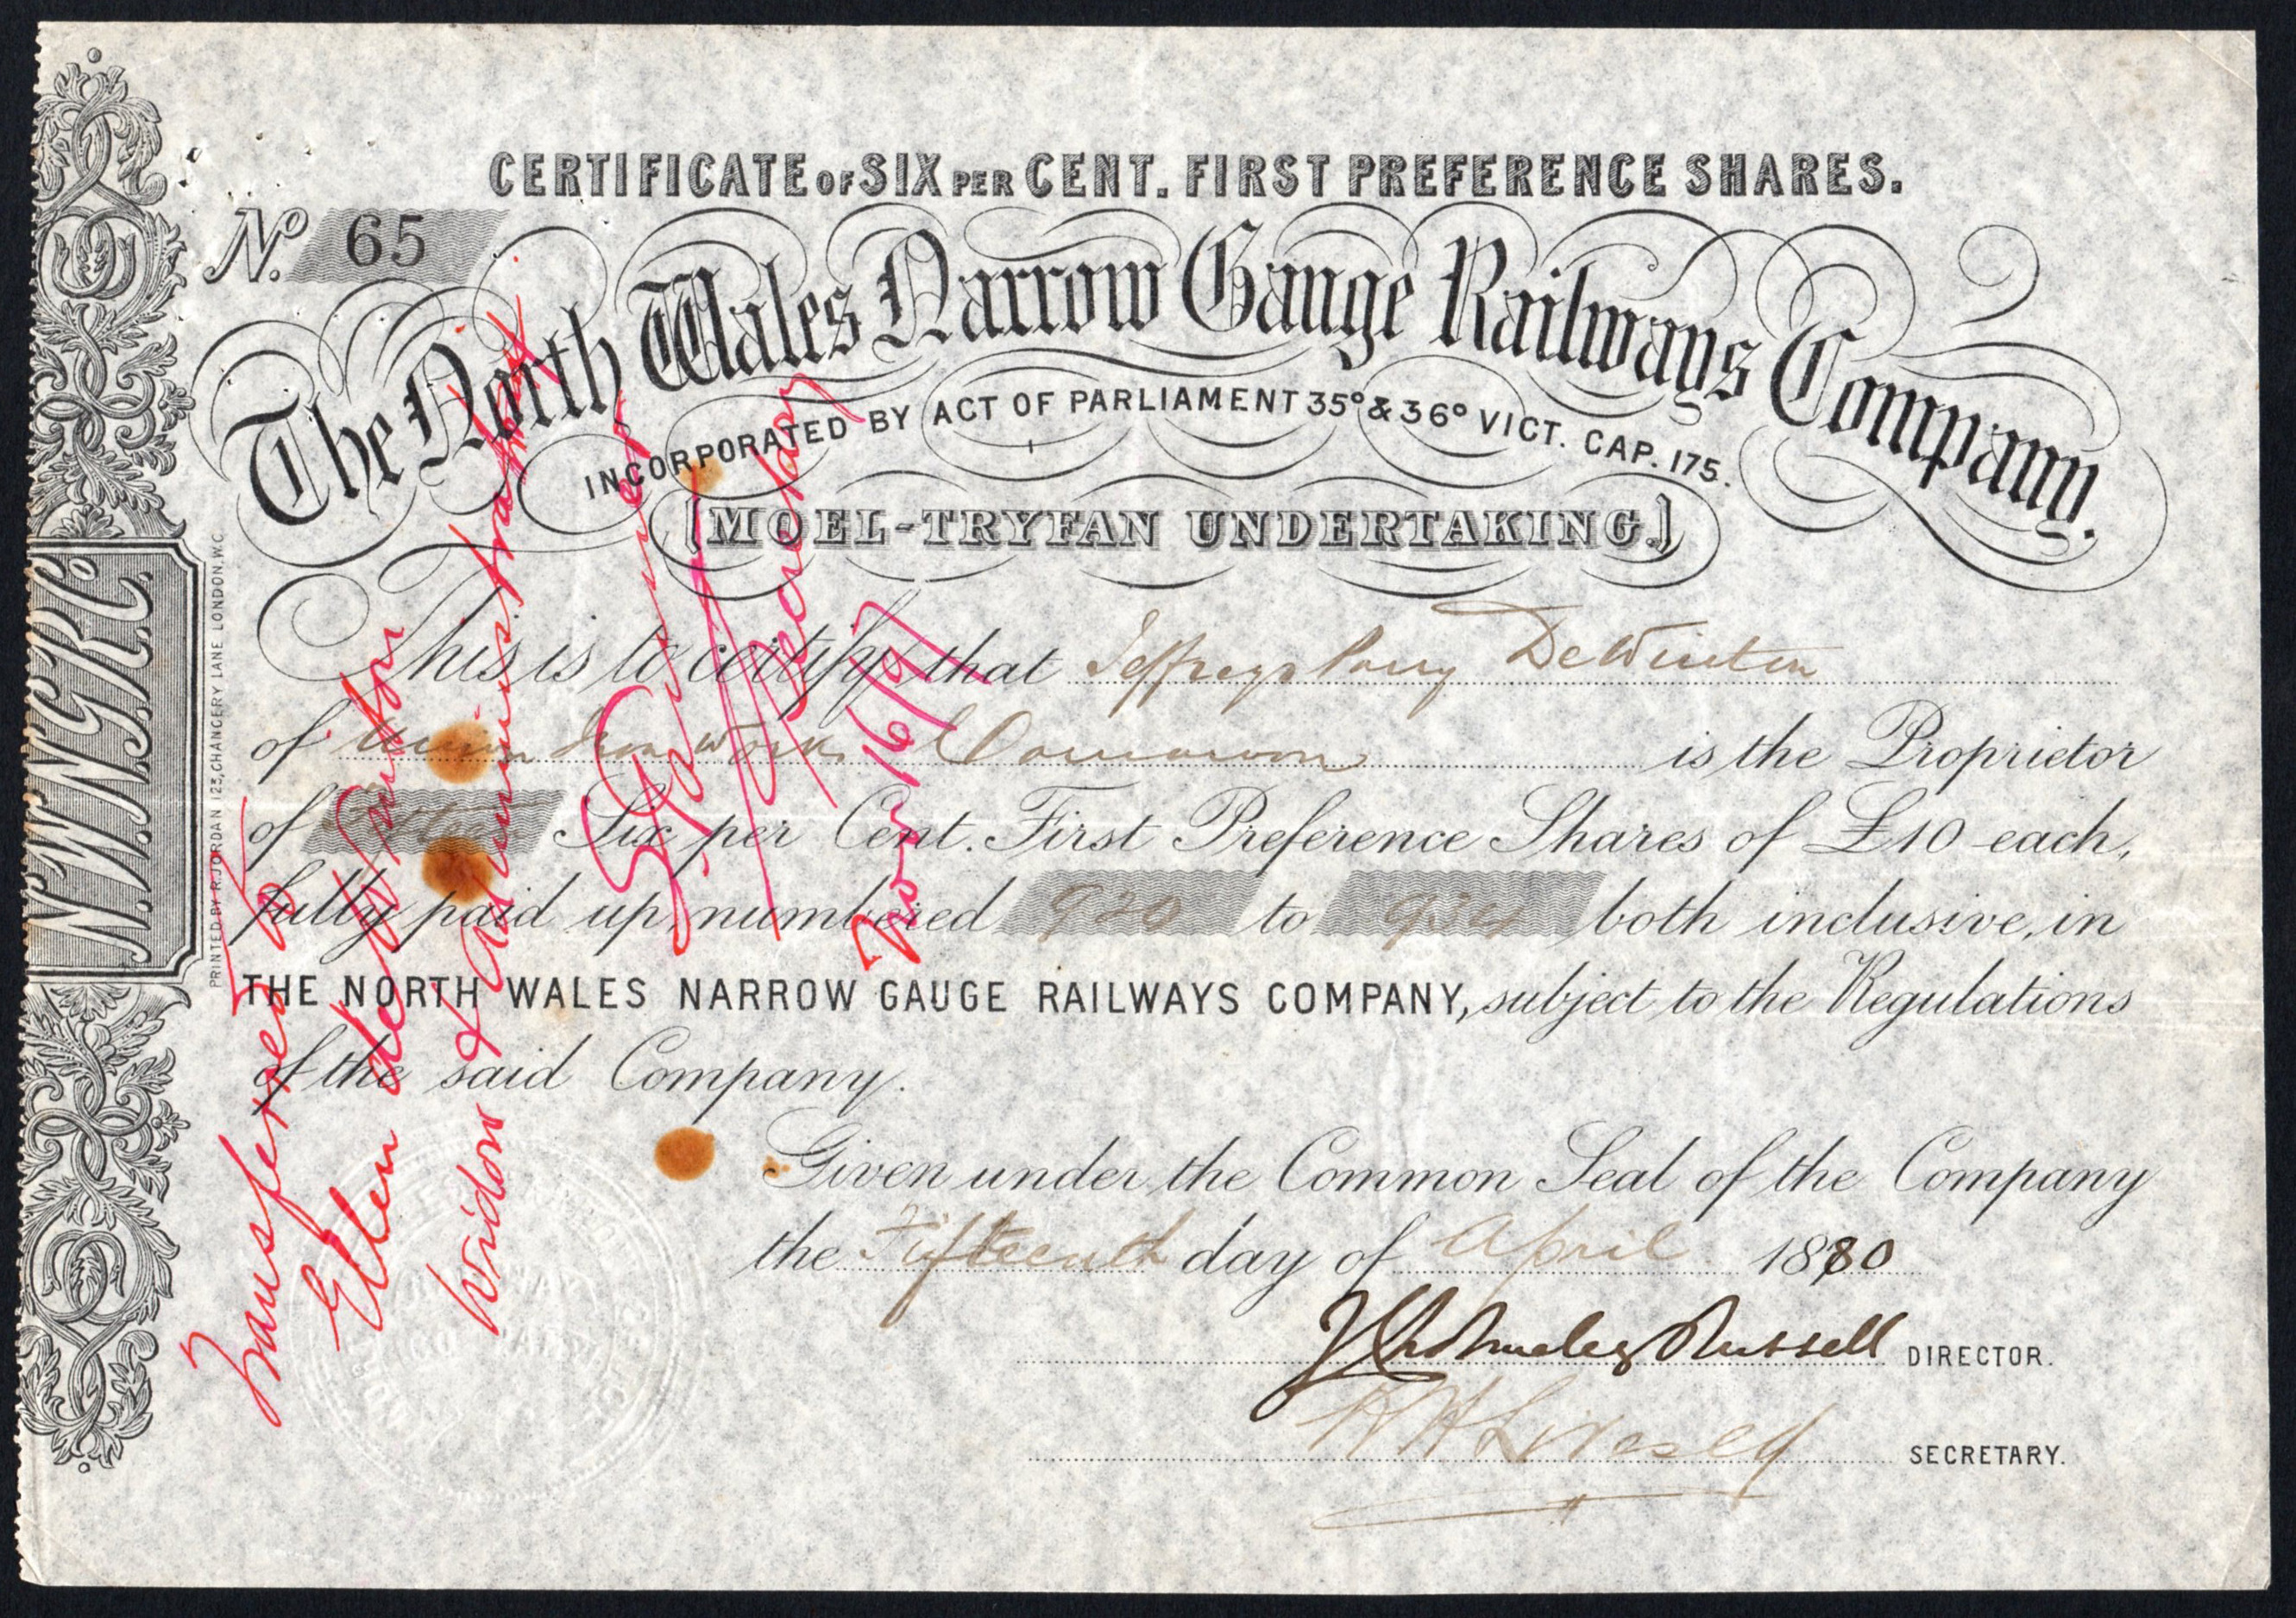 CERTIFICATE OF SIX PER CENT. FIRST PREFERENCE SHARES.
No. 65
The North Wales Narrow Gauge Railways Company.
INCORPORATED BY ACT OF PARLIAMENT 35º & 36º VICT. CAP. 175.
[MOEL-TRYFAN UNDERTAKING.]
This is to certify that Jeffreys Parry DeWinton
of Union Iron Works Carnarvon is the Proprietor
of Fifteen Six per Cent. First Preference Shares of £10 each,
fully paid up, numbered 920 to 934 both inclusive, in
THE NORTH WALES NARROW GAUGE RAILWAYS COMPANY, subject to the Regulations
of the said Company.
Given under the Common Seal of the Company
the Fifteenth day of April 1880
J Cholmeley Russell DIRECTOR.
R H Livesey SECRETARY.
N.W.N.G.R.Co.
PRINTED BY R. JORDAN 123, CHANCERY LANE LONDON. W.C.
Transferred to
Ellen de Winton
widow & administratrix
Secretary
Nov 16/97